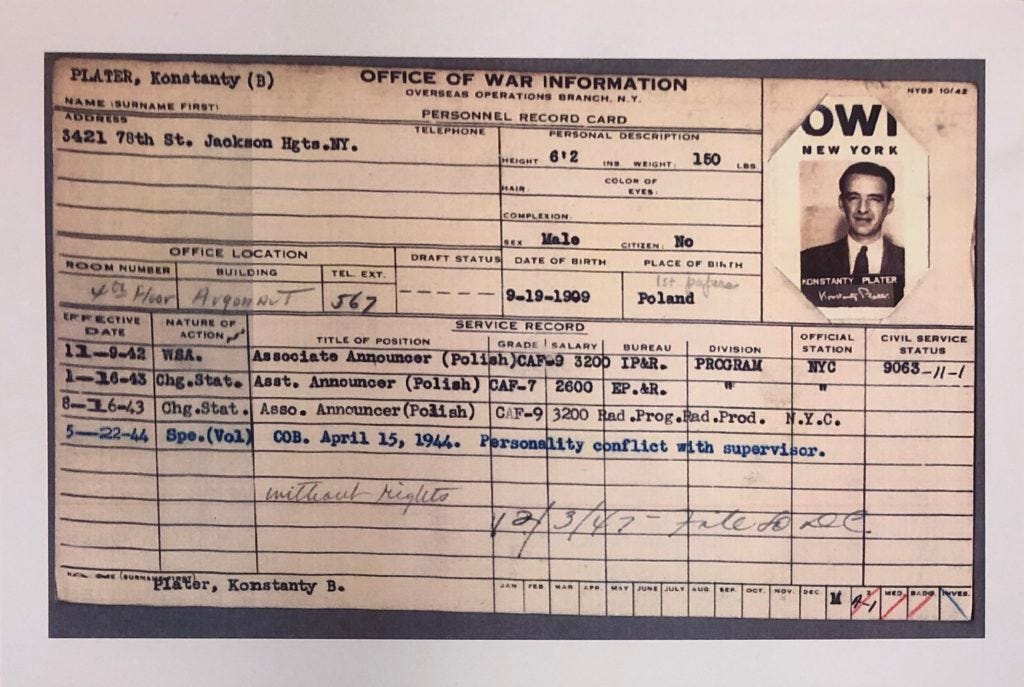 PLATER, Konstanty (B)
OFFICE OF WAR INFORMATION
OVERSEAS OPERATIONS BRANCH, N.Y.
NYB3 10/42
NAME (SURNAME FIRST)
PERSONNEL RECORD CARD
ADDRESS
TELEPHONE
PERSONAL DESCRIPTION
3421 78th St. Jackson Hgts.NY.
HEIGHT 6'2 INS WEIGHT: 150 LBS
HAIR: COLOR OF EYES:
COMPLEXION:
SEX Male CITIZEN: No
OWI
NEW YORK
KONSTANTY PLATER
Konstanty Plater
OFFICE LOCATION
DRAFT STATUS DATE OF BIRTH PLACE OF BIRTH
ROOM NUMBER BUILDING TEL. EXT.
1st papers
4th Floor Argonaut 567 - - - - - - 9-19-1909 Poland
SERVICE RECORD
EFFECTIVE DATE NATURE OF ACTION TITLE OF POSITION GRADE SALARY BUREAU DIVISION OFFICIAL STATION CIVIL SERVICE STATUS
11-9-42 WSA. Associate Announcer (Polish)CAF-9 3200 IP&R. PROGRAM NYC 9063-11-1
1-16-43 Chg.Stat. Asst. Announcer (Polish) CAF-7 2600 EP.&R. " "
8-16-43 Chg.Stat. Asso. Announcer(Polish) CAF-9 3200 Rad.Prog.Rad.Prod. N.Y.C.
5-22-44 Spe.(Vol) COB. April 15, 1944. Personality conflict with supervisor.
without rights
12/3/47 - File to DC
(SURNAME FIRST)
Plater, Konstanty B.
JAN FEB MAR APR. MAY JUNE JULY AUG. SEP. OCT. NOV. DEC. M MED. BADG. INVES.